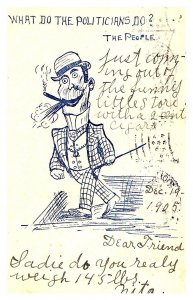 WHAT DO THE POLITICIANS DO?
THE PEOPLE.
Just com-
ing out of
the funny
little store
with a 2 cent
cigar.
Dec. 19,
1905.
Dear Friend
Sadie do you realy
weigh 145 lbs.